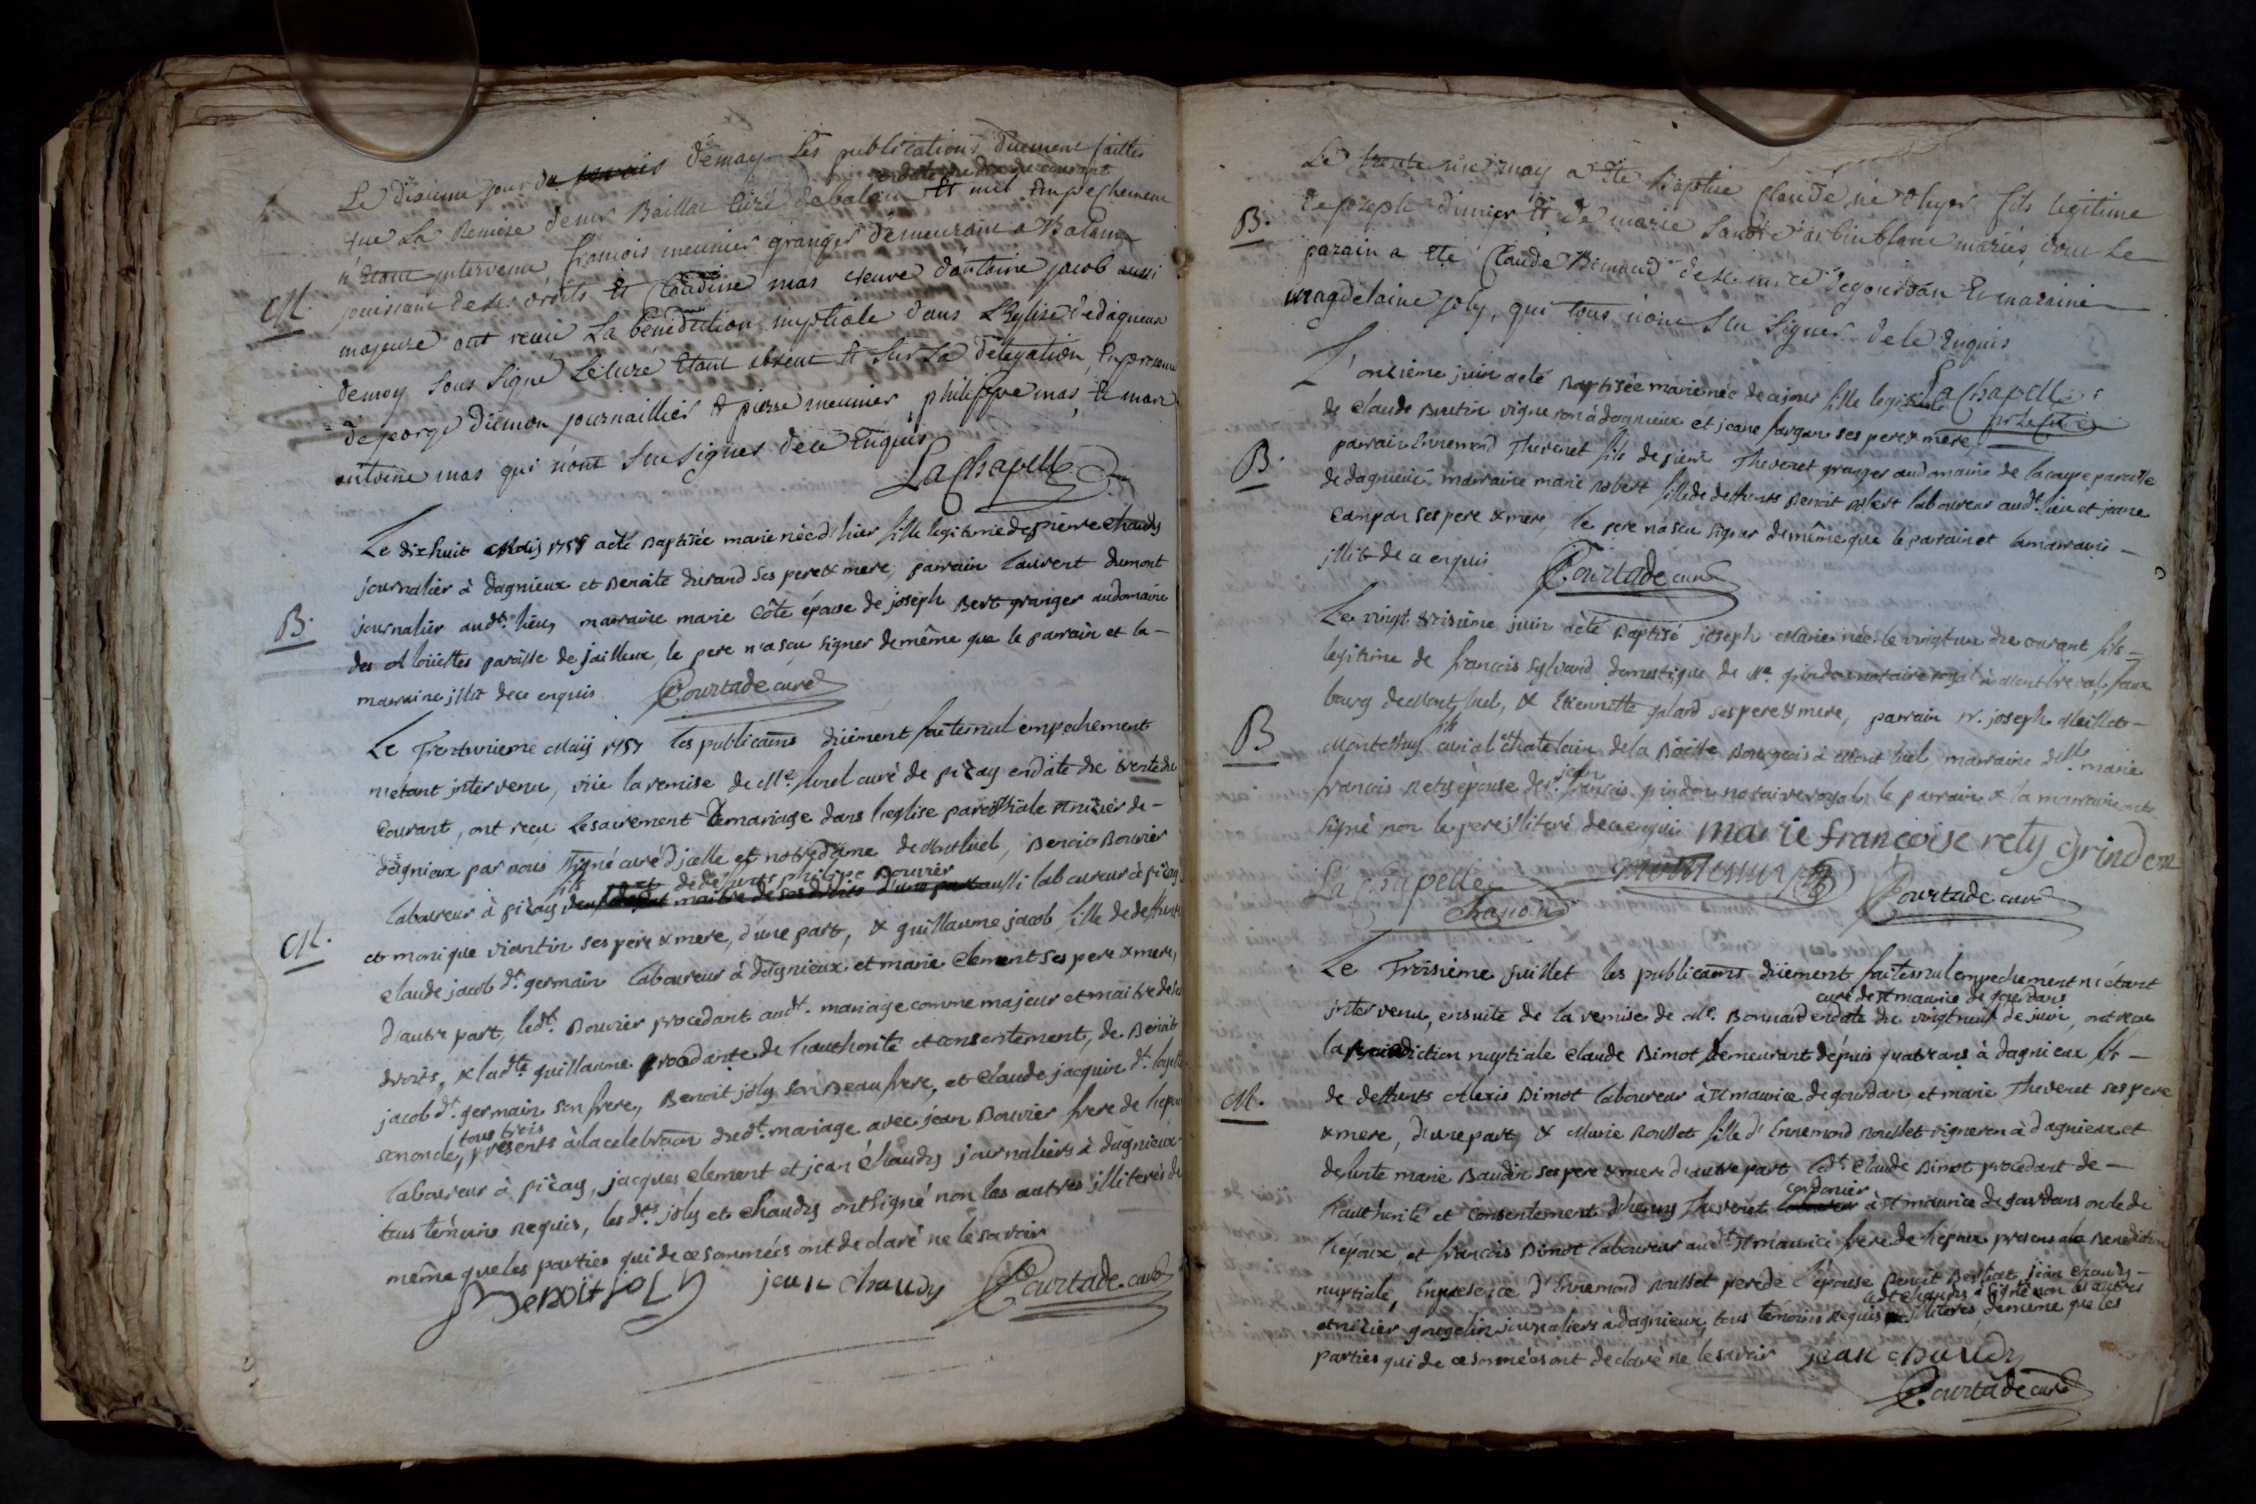 Le dixieme jour de demay Les publications duement faittes
veu La Remise demr Baillat curé debalan Et nul Empechement
n'Etant intervenu, francois meunier granger demeurant a Balan
M. jouissant de ses droits Et Claudine mas veuve dantoine jacob aussi
majeure ont recu La benediction nuptiale dans L'Eglise dedagneux
demoy sous signé Le curé Etant absent Et sur sa delegation, En presence
de george journaillier Et pierre meunier, philippe mas, Et
antoine mas qui n'ont sceu signer de ce Enquis
La Chapelle
Le dixhuit Maij 1757 a été Baptisée marie née d'hier fille legitime de pierre chaudy
journalier à dagnieux et Benoite durand ses pere & mere, parrain Laurent dumont
B. journalier audt. lieu, marraine marie Côte épouse de joseph Bert granger audomaine
des Alouettes paroisse de jailleux, le pere n'a sçu signer de même que le parrain et la -
marraine illit de ce enquis Courtade curé
Le Trentunieme Maij 1757 les publicaons düement faites nul empechement
n'etant intervenu, vüe la remise de Me. curé de pizay en date du trente du
Courant, ont reçu le sacrement de mariage dans l'eglise paroissiale st nizier de -
dagnieux par nous ssigné curé d'icelle et notre dame de Montluel, Benoit Bouvier
fils de deffunts philipe Bouvier
laboureur à pizay maitre de ses droits d'une part aussi laboureur à pizay
M. et monique viantin ses pere & mere, d'une part, & guillaume jacob fille de deffunts
claude jacob dt. germain laboureur à dagnieux et marie Clement ses pere & mere,
d'autre part, ledt. Bouvier procedant audt. mariage comme majeur et maitre de ses
droits, & ladte guillaume procedante de l'authorité et consentement, de Benoit
jacob dt. germain son frere, Benoit joly son Beaufrere, et Claude jacquin dt.
tous trois
son oncle, presents à la celebraon dudt. mariage avec jean Bouvier frere de l'epoux
laboureur à pizay, jacques clement et jean chaudy journaliers à dagnieux
tous temoins requis, les dts joly et chaudy ont signé non les autres illiterés de
même que les parties qui de ce sommées ont declaré ne le savoir
Benoit joly jean chaudy Courtade curé
Le trente un may a Ete Baptise Claude né fils legitime
B. de joseph Et de marie mariés, dont Le
parain a Ete Claude de st maurice de gourdan Et maraine
magdelaine joly, qui tous n'ont sceu signer de ce Enquis
La Chapelle
L'onzieme juin a été Baptisée marie née de ce jour fille legitime
de Claude Boutin vigneron à dagnieux et jeane ses pere & mere,
B. parrain Ennemond Thevenet fils de pierre Thevenet granger audomaine de paroisse
de dagnieux, marraine marie Robert fille de deffunts Benoit Robert laboureur audt. lieu et jeane
Campan ses pere & mere le pere n'a sçu signer de même que le parrain et la marraine -
illit de ce enquis Courtade curé
Le vingt troisieme juin a été Baptisé joseph Marie né le vingt un du courant fils -
legitime de françois Sylvand domestique de Me. grindon notaire royal à faux
bourg de Montluel, & Etiennette galand ses pere & mere, parrain Sr. joseph
B Montessuy chatelain de la Boisse Bourgeois à Montluel, marraine delle marie
françois Rety épouse de sr. françois grindon notaire royal, le parrain & la marraine ont
signé non le pere illiteré de ce enquis marie françoise rety grindon
La Chapelle Montessuy Courtade curé
Le Troisieme juillet les publicaons düement faites nul empechement n'étant
curé de st maurice de gourdans
intervenu, ensuite de la remise de Me. Bonnard en date du vingt neuf de juin, ont reçu
la Benediction nuptiale Claude Bimot demeurant dépuis quatre ans à dagnieux fils -
M. de deffunts Alexis Bimot laboureur à st maurice de gourdan et marie Thevenet ses pere
& mere, d'une part, & Marie Rousset fille d'Ennemond Rousset vigneron à dagnieux et
defunte marie Baudin ses pere & mere d'autre part ledt. Claude Bimot procedant de -
cordonier
l'authorité et consentement Thevenet laboureur à st maurice de gourdans oncle de
l'époux, et françois Bimot laboureur audt st maurice frere de l'epoux presens a la Benediction
nuptiale, En presence d'Ennemond Rousset pere de l'épouse Benoit jean chaudy -
ledt chaudy a signé non les autres
et nizier gougelin journaliers à dagnieux, tous temoins requis illiterés, de meme que les
parties qui de ce sommées ont declaré ne le savoir jean chaudy
Courtade curé